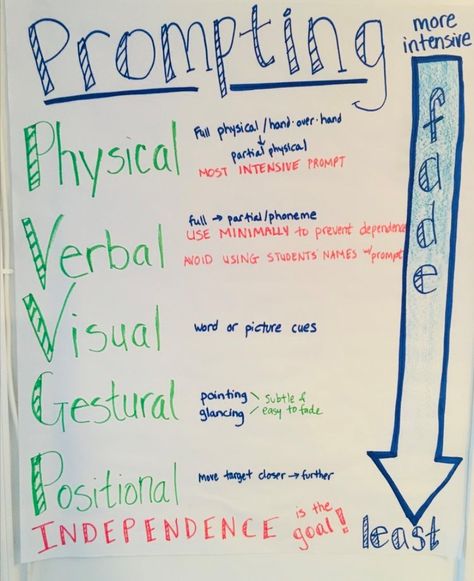 Prompting
more
intensive
fade
Physical
Full physical/hand-over-hand
↓
partial physical
MOST INTENSIVE PROMPT
Verbal
full → partial/phoneme
USE MINIMALLY to prevent dependence
AVOID USING STUDENTS' NAMES w/prompt
Visual
word or picture cues
Gestural
pointing
glancing
subtle &
easy to fade
Positional
move target closer → further
INDEPENDENCE is the
goal!
least